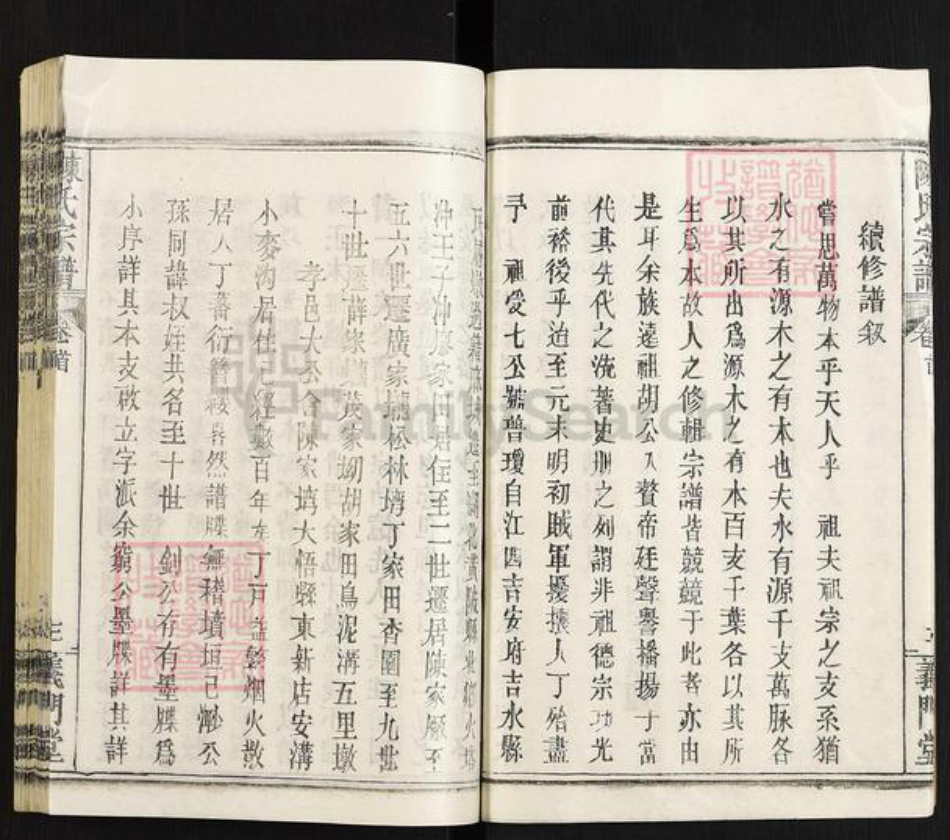 續修譜叙
嘗思萬物本乎天人乎 祖夫祖宗之支系猶
水之有源木之有本也夫水有源千支萬脉各
以其所出爲源木之有本百支千葉各以其所
生爲本故人之修輯宗譜皆競競于此者亦由
是耳余族遠祖胡公入贅帝廷聲譽播揚于當
代其先代之流著史册之列謂非祖德宗功光
前裕後乎迨至元末明初賊軍擾攘人丁殆盡
予 祖受七公號普瓊自江西吉安府吉水縣
至湖北黃陂縣
冲王子冲廖家田居住至二世遷居陳家廠至
五六世遷廣家 松林塆丁家田杏園至九世
十世遷薛家 茂家坳胡家田鳥泥溝五里墩
孝邑大公會陳家塆大悟驛東新店安溝
小麥沟居住 經數百年矣丁戸益繁烟火散
居人丁蕃衍 然譜牒無稽墳垣已 公
孫同諱叔姪共名至十世 釗公存有墨牒爲
小序詳其本支啟立字派余窮公墨牒詳其詳
陳氏宗譜
卷首
三 義門堂
陳氏宗譜
卷首
義門堂
FamilySearch